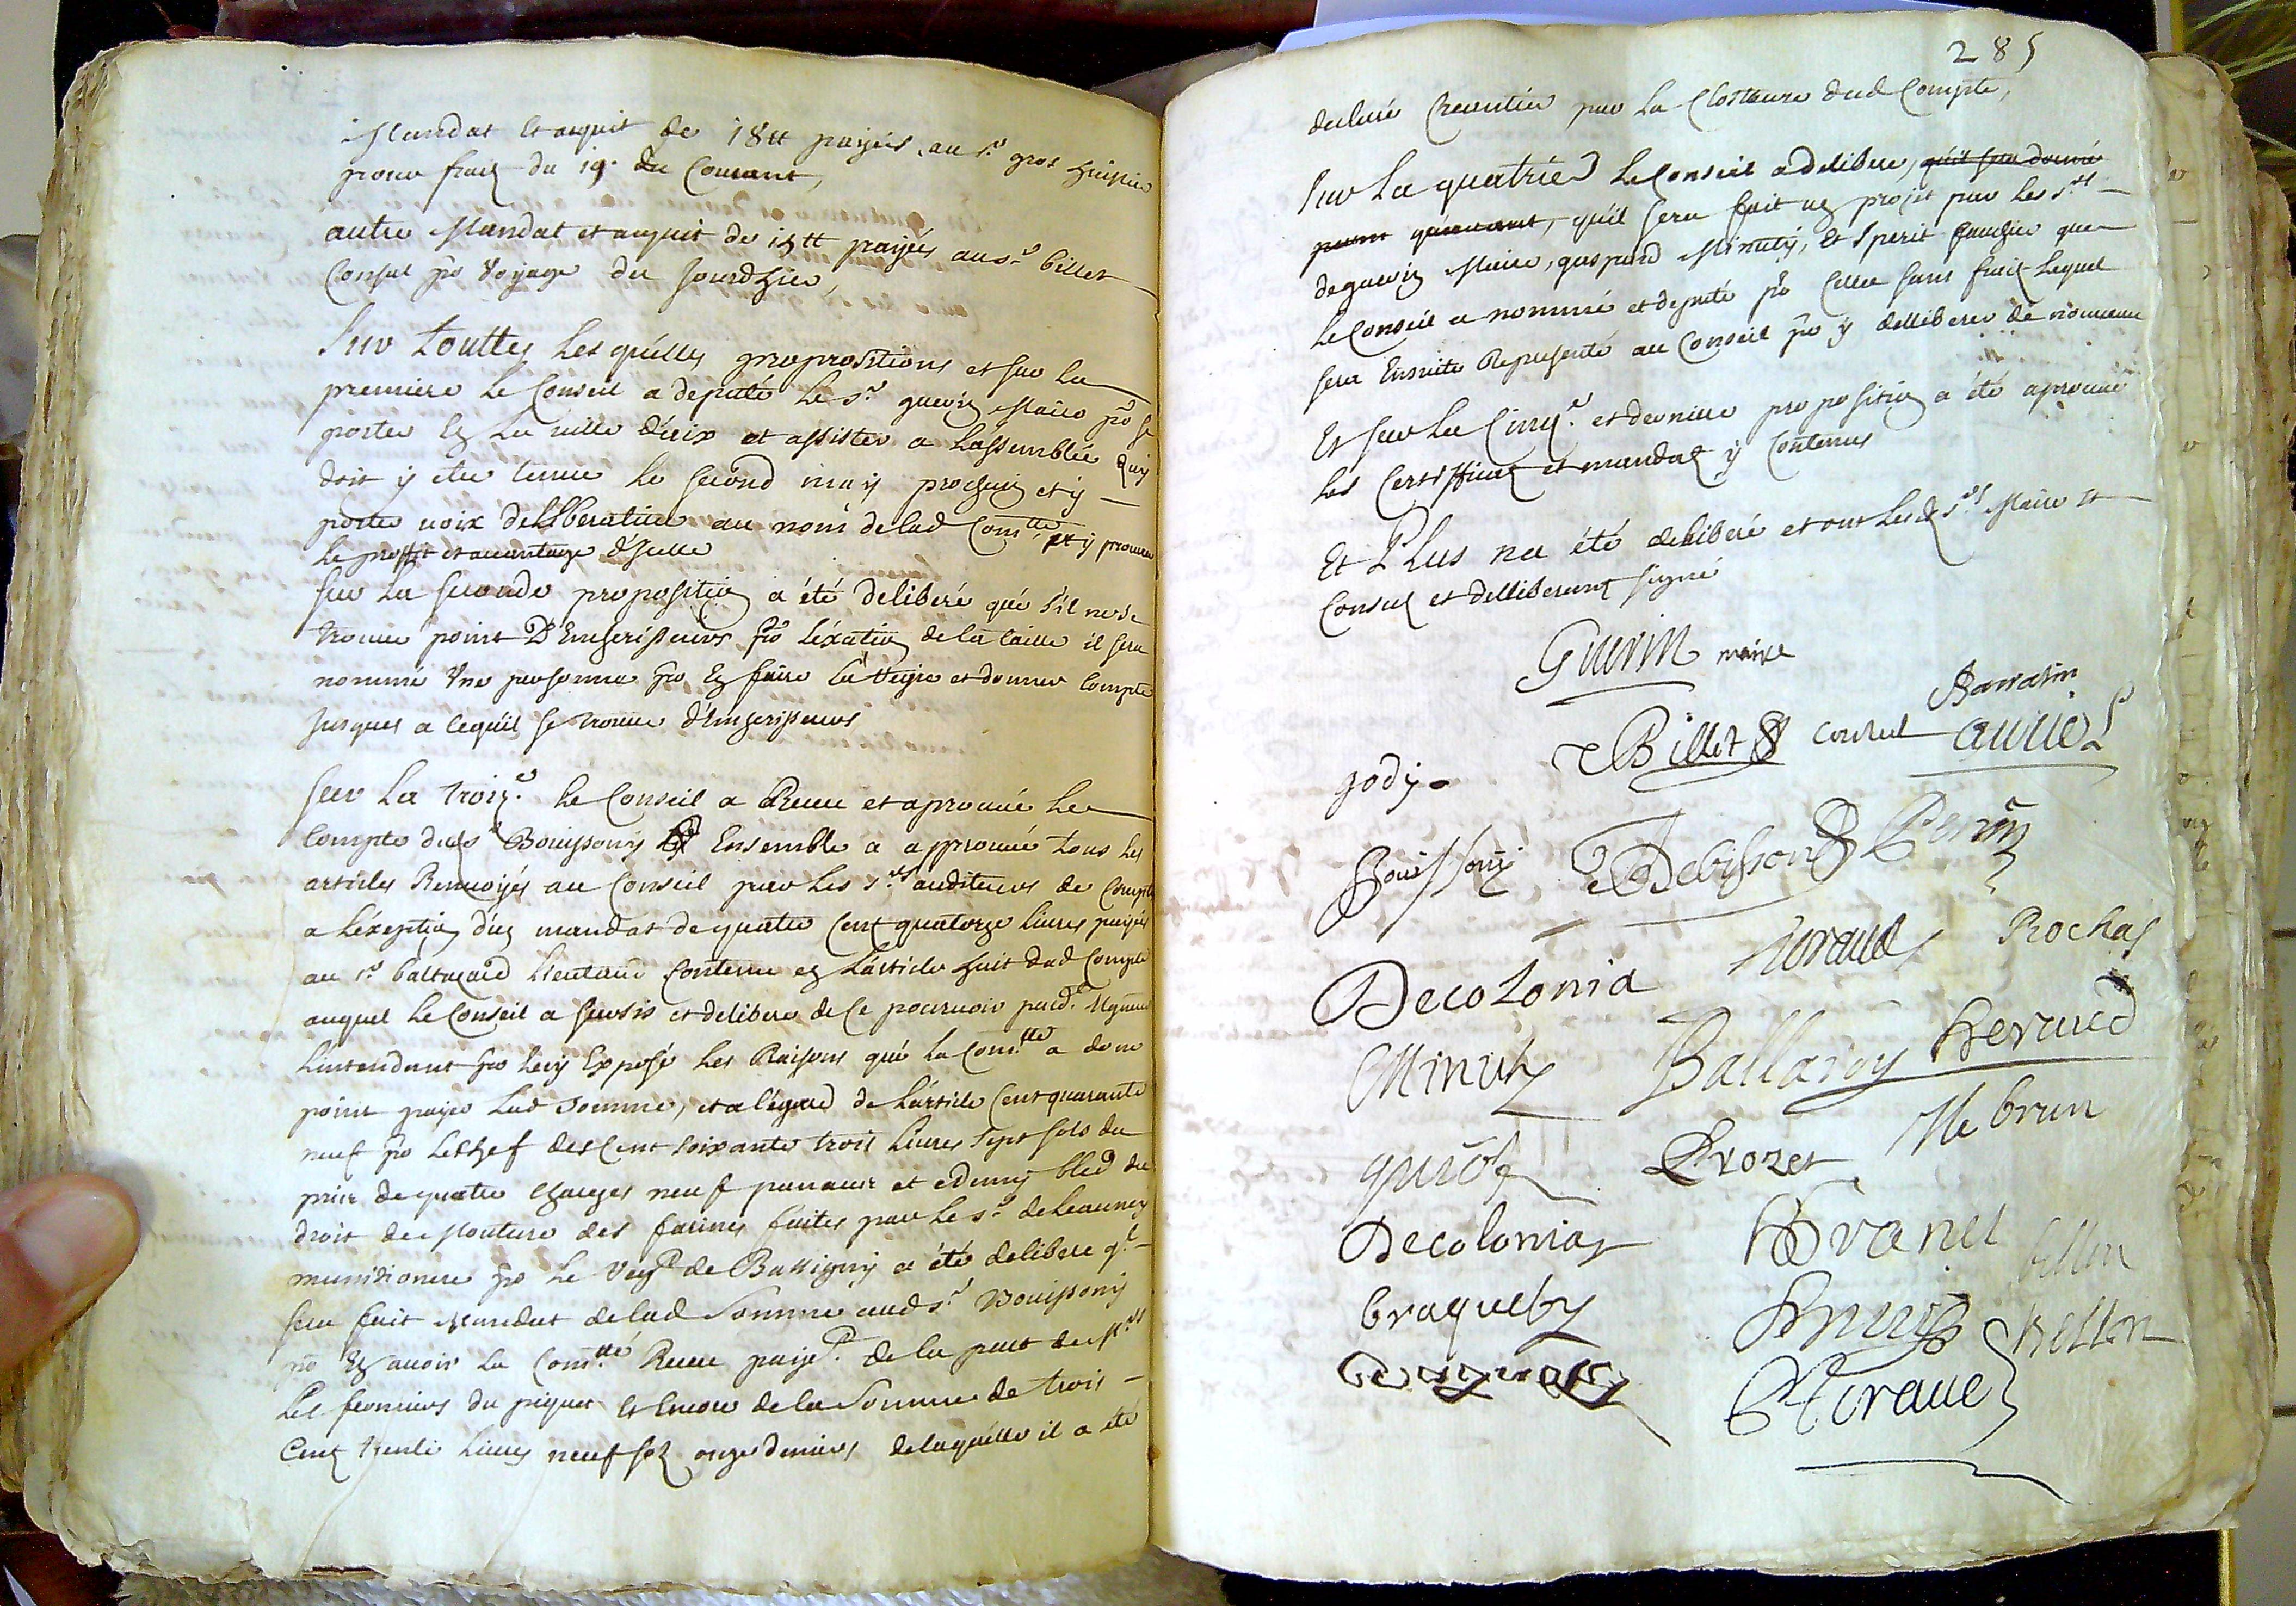 Mandat et aquit de 18tt payées au sr gros huissier
pour frais du 19. du Courant,
autre Mandat et aquit de 15tt payées au sr billet
Consul po voyage du jourdhier,
Sur touttes Lesquelles propositions et sur La
premiere Le Conseil a deputé Le sr guerin Maire po se
porter En La ville d'aix et assister a L'assemblée quy
doit y etre tenue le second may prochain et y
porter voix delliberative au nom de lad Comtté et y procurer
le proffit et avantage d'Icelle
Sur La seconde proposition a été deliberé que s'il ne se
trouve point D'Encherisseurs po L'exation de la taille il sera
nommé Une personne po En faire La Regie et donner Compte
jusques a ce quil se trouve d'Encherisseurs
Sur La troise Le Conseil a Receu et aprouvé Le
Compte dud sr Bouissony Ensemble a approuvé tous les
articles Renvoyés au Conseil par Les srs auditeurs de Compte
a L'exeption d'un mandat de quatre Cent quatorze livres payées
au sr baltazard Lieutaud Contenu en L'article huit dud Compte
auquel Le Conseil a sursis et delibere de se pourvoir pard.
Lintendant po luy Exposé Les Raisons que La Comtté a de ne
point payer Lad somme, et a l'égard de L'article Cent quarante
neuf po Le Chef des Cent soixante trois Livres sept sols du
prix de quatre Charges neuf panaux et demy bled du
droit de Mouture des farines faites par Le sr de Leaunay
munitionere po Le Regt de Bassigny a été delibere ql
sera fait Mandat de lad Somme aud sr Bouissony
po En avoir La Comtté Receu payet de la part de Mrs
Les fermiers du piquet Et Encore de la Somme de trois
Cens trente Livres neuf sols onze deniers de laquelle il a été
285
declaré Creantier par La Clotture dud Compte,
Sur La quatrie Le Conseil a delibere, qu'il sera donné
point qu'avant, qu'il sera fait un projet par Les srs
deguerin Maire, gaspard Minuty, Et Sperit que
Le Conseil a nommé et deputé po Celle sans frais Lequel
sera Ensuite Represente au Conseil po y delliberer de nouveau
Et sur La Cinqe et derniere proposition a été aprouvé
Les Certifficats et mandats y Contenus
Et Plus na été deliberé et ont Lesd srs Maire et
Consul et delliberants signé
Guerin maire
Barratin
Billet Consul auriel
gody
Bouissony Debisson Perrin
Decolonia Noraud Rochas
Minuty Ballardy Heraud
guiot Drozet Me brun
Decolonia
braqueby
Bellon